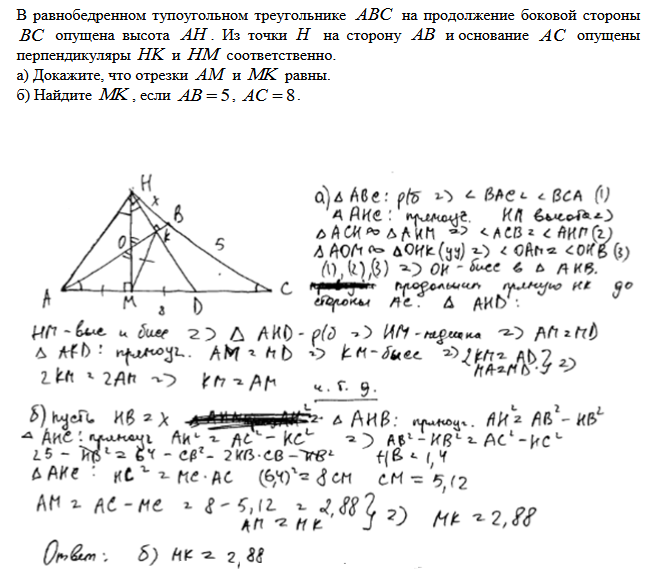 В равнобедренном тупоугольном треугольнике ABC на продолжение боковой стороны
BC опущена высота AH. Из точки H на сторону AB и основание AC опущены
перпендикуляры HK и HM соответственно.
а) Докажите, что отрезки AM и MK равны.
б) Найдите MK, если AB = 5, AC = 8.
H
x
B
K
O
5
A
M
8
D
C
а) △ ABC: р/б => ∠BAC = ∠BCA (1)
△ AHC: прямоуг. HM высота =>
△ACH ∾ △AHM => ∠ACB = ∠AHM (2)
△AOM ∾ △OHK (уу) => ∠OAM = ∠OHB (3)
(1), (2), (3) => OH - бисс в △ AHB.
продолжим прямую HK до
стороны AC. △ AHD:
HM - выс и бисс => △ AHD - р/б => HM - медиана => AM = MD
△ AKD: прямоуг. AM = MD => KM - бисс => 2KM = AD
MA = MD } =>
2KM = 2AM => KM = AM ч. т. д.
б) пусть HB = x △ AHB: прямоуг. AH² = AB² - HB²
△ AHC: прямоуг AH² = AC² - HC² => AB² - HB² = AC² - HC²
25 - HB² = 64 - CB² - 2HB·CB - HB² HB = 1,4
△ AHC: HC² = MC·AC (6,4)² = 8CM CM = 5,12
AM = AC - MC = 8 - 5,12 = 2,88
AM = MK } => MK = 2,88
Ответ: б) MK = 2,88